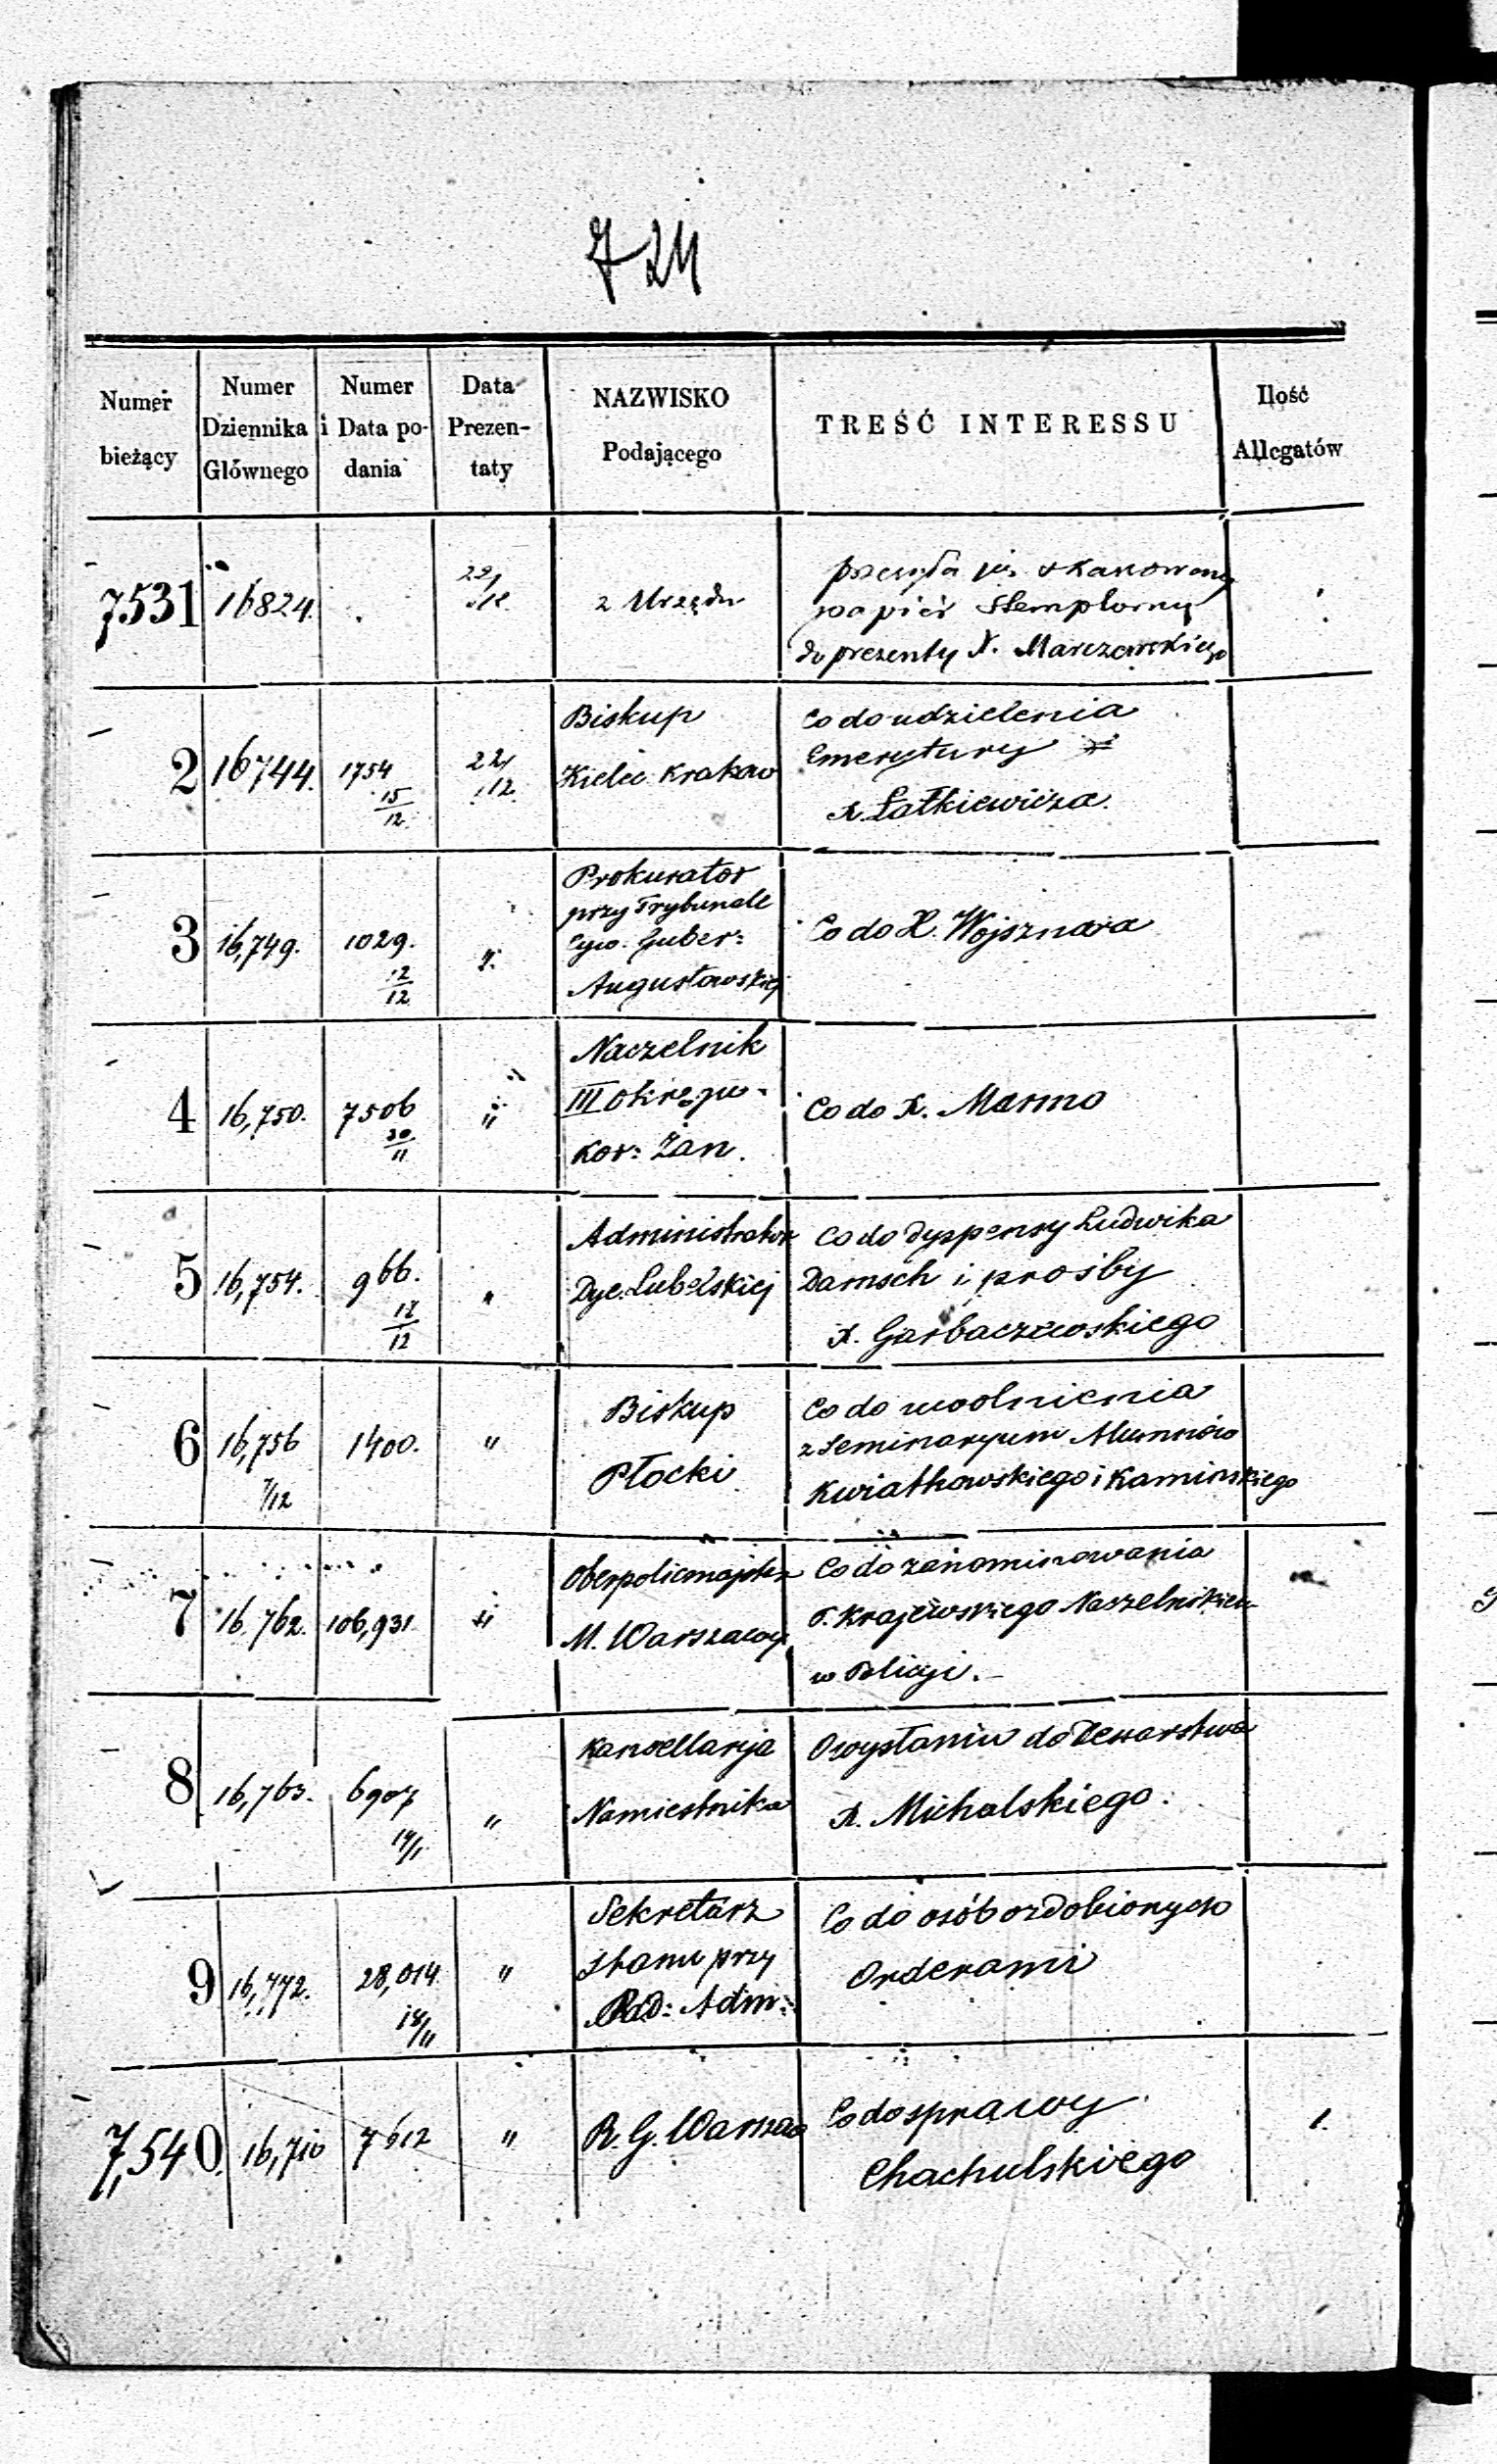 724
Numer bieżący
Numer Dziennika Głównego
Numer i Data podania
Data Prezentaty
NAZWISKO Podającego
TREŚĆ INTERESSU
Ilość Allegatów
7531 16824. 22/12. z Urzędu
papier stemplowy
do prezenty X. Marczewskiego
2 16744. 1754 15/12 22/12.
Biskup
Kielec Krakow
Co do udzielenia
Emerytury
X. Łatkiewicza.
3 16,749. 1029. 12/12 "
Prokurator
przy Trybunale
Cyw. Guber:
Augustowskiej
Co do X. Wojsznara
4 16,750. 7506 30/11 "
Naczelnik
III Okręgu
Kor: Żan.
Co do X. Marmo
5 16,754. 966. 17/12 "
Administrator
Dyec. Lubelskiej
Co do dyspensy Ludwika
Damsch i prośby
X. Garbaczewskiego
6 16,756 7/12 1400. "
Biskup
Płocki
Co do uwolnienia
z Seminaryum Alumnów
Kwiatkowskiego i Kaminskiego
7 16,762. 106,931. "
Oberpolicmajster
M. Warszawy
Co do zanominowania
P. Krajewskiego Naczelnikiem
w Policyi.
8 16,763. 6907 "
Kancellarya
Namiestnika
O wysłaniu do Cesarstwa
X. Michalskiego.
9 16,772. 28,014 18/11 "
Sekretarz
Stanu przy
Rad: Adm:
Co do osób ozdobionych
Orderami
7,540. 16,710 7612 "
R. G. Warszaw
Co do sprawy
Chachulskiego
1.